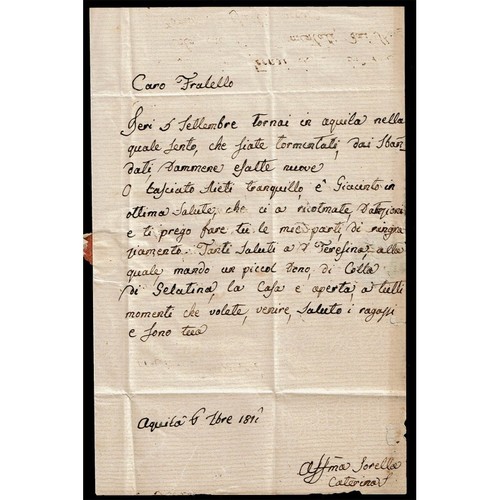 Caro Fratello
Jeri 5 Settembre tornai in aquila nella
quale sento, che siate tormentati, dai Sban-
dati, Dammene esatte nuove
O lasciato Nieti tranquillo, è Giacinto in
ottima Salute, che ci a ricolmate, D'attenzioni
e ti prego fare tu le mie parti di ringra
ziamento. Tanti Saluti a D Teresina, alla
quale mando un piccol Dono, di Cotta
di Gelatina, la Casa e aperta, a tutti
momenti che volete, venire, Saluto i ragazzi
e sono tua
Aquila 6 7bre
Affma Sorella
Caterina